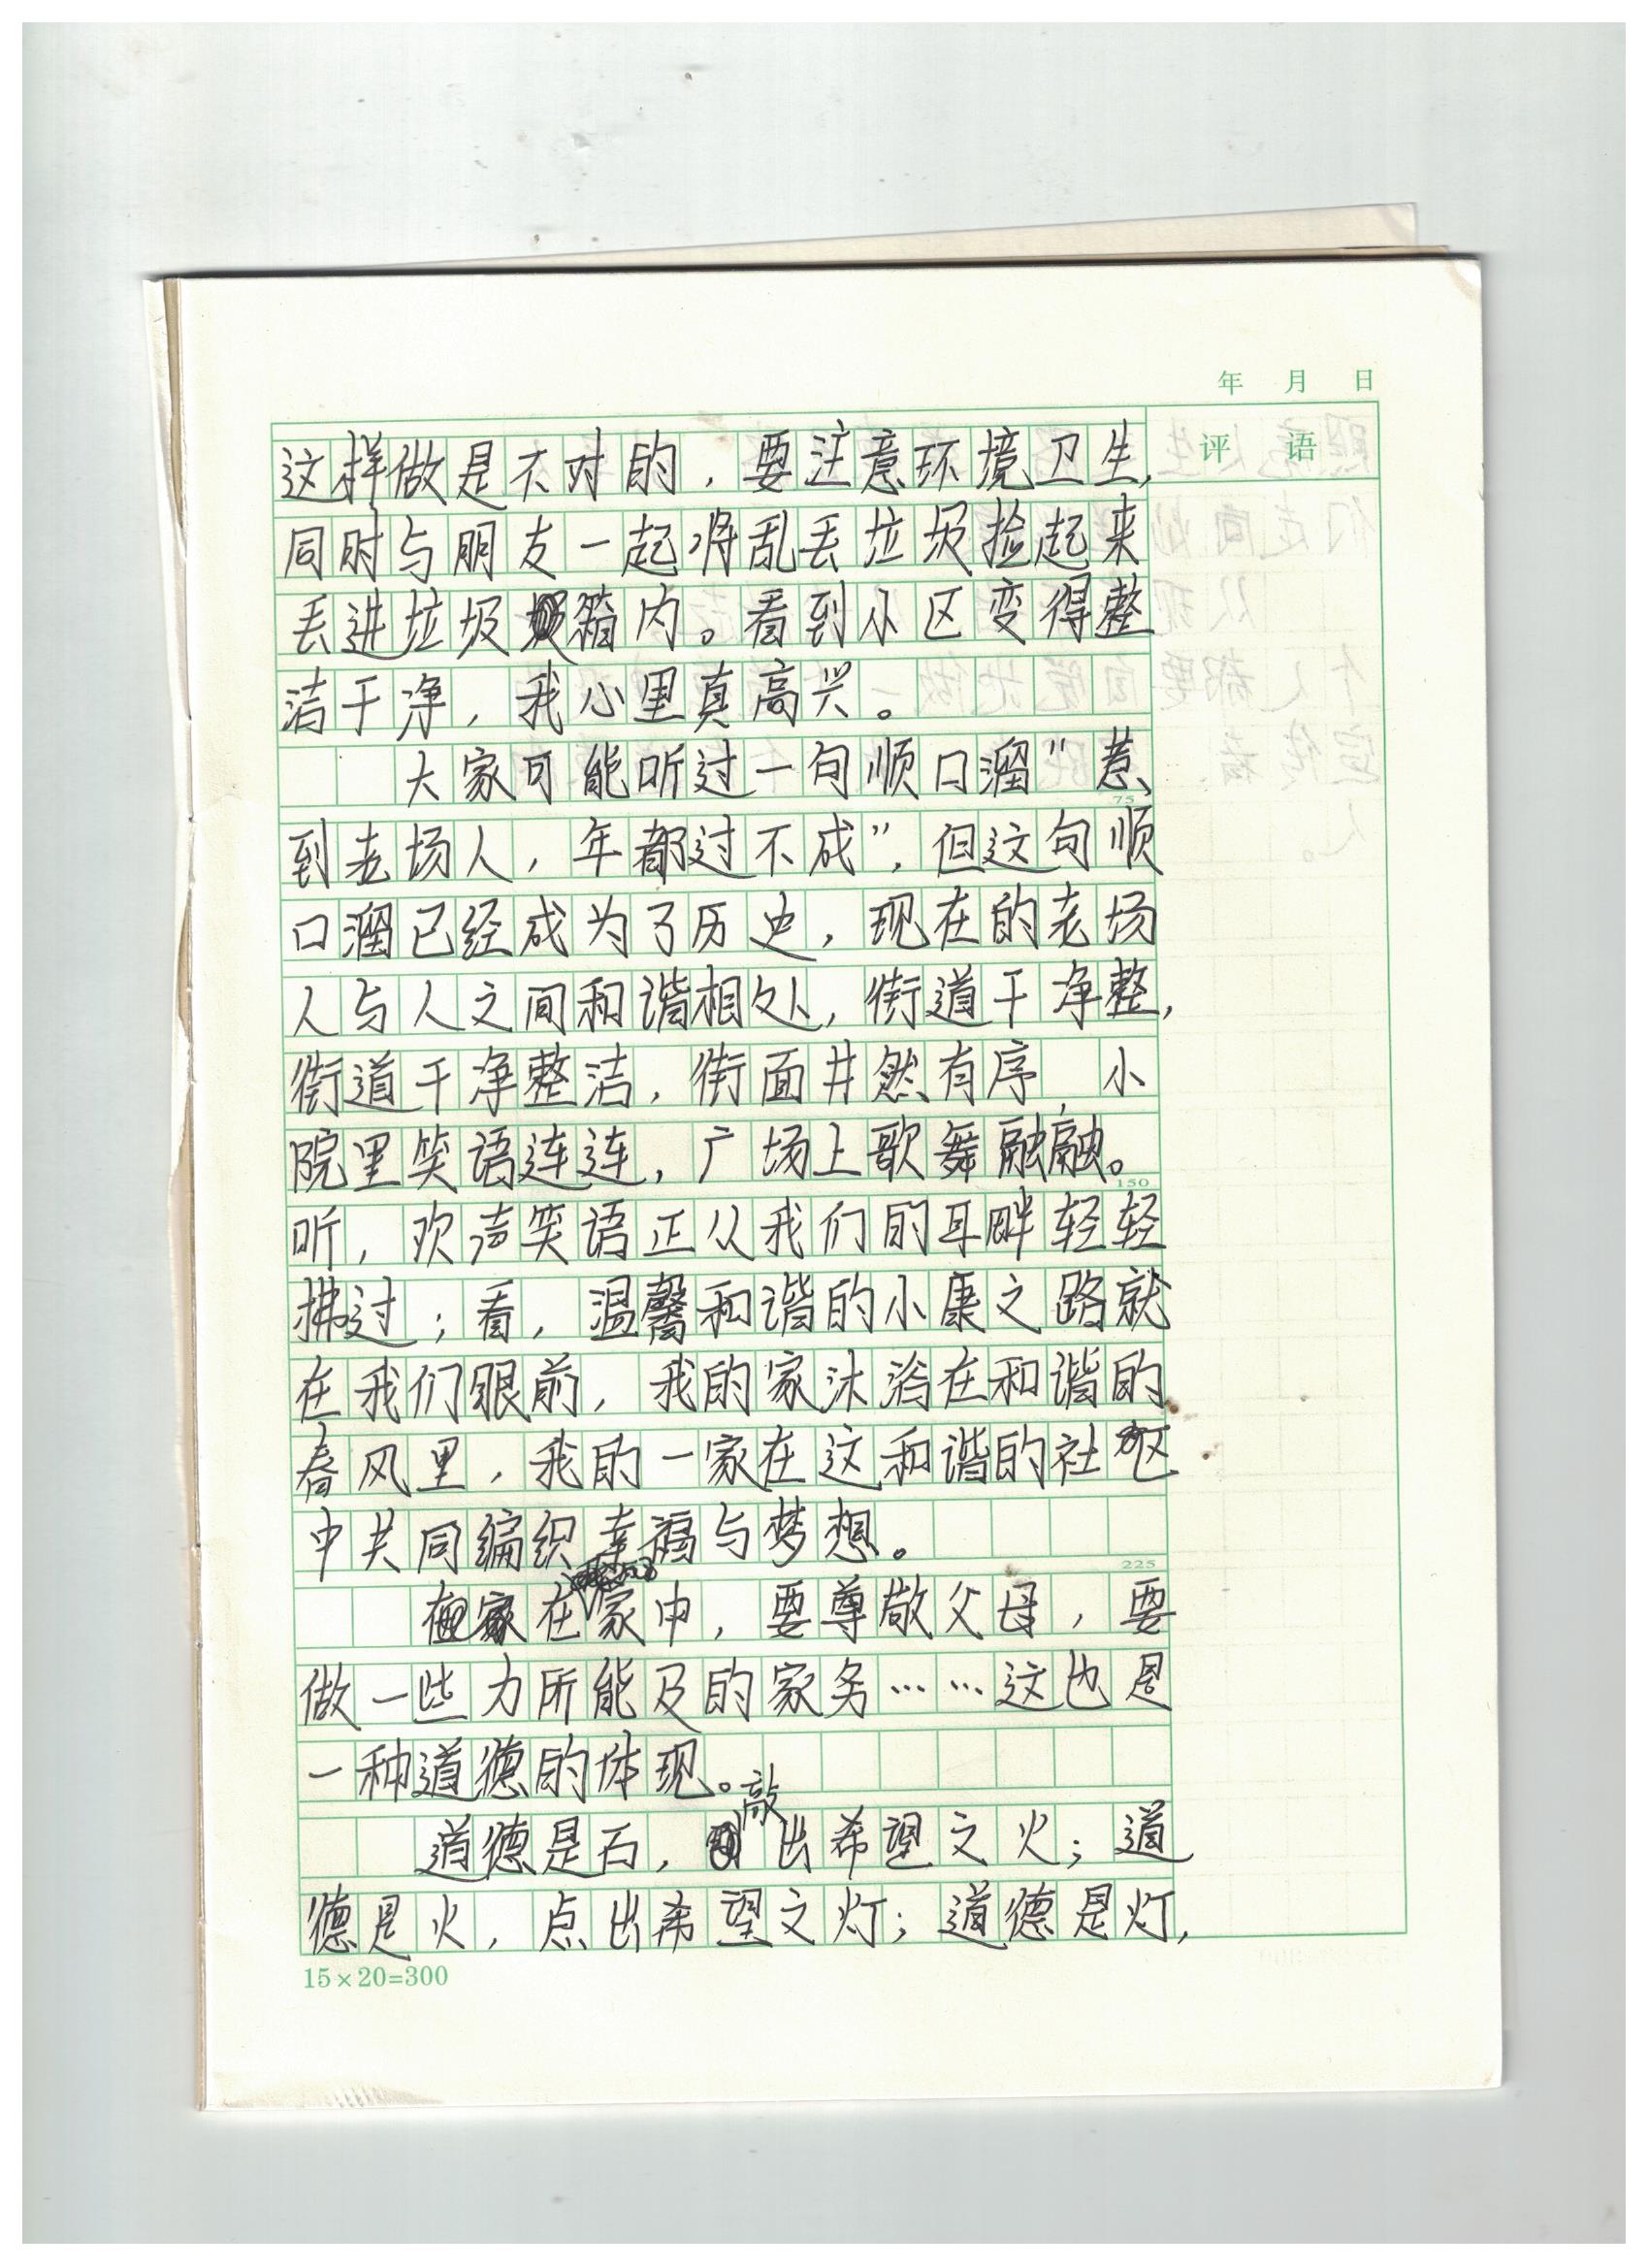 年 月 日
评 语
这样做是不对的，要注意环境卫生，
同时与朋友一起将乱丢垃圾捡起来
丢进垃圾箱内。看到小区变得整
洁干净，我心里真高兴。
大家可能听过一句顺口溜“惹
到老场人，年都过不成”，但这句顺
口溜已经成为了历史，现在的老场
人与人之间和谐相处，街道干净整，
街道干净整洁，街面井然有序，小
院里笑语连连，广场上歌舞融融。
75
150
听，欢声笑语正从我们的耳畔轻轻
拂过；看，温馨和谐的小康之路就
在我们眼前，我的家沐浴在和谐的
春风里，我的一家在这和谐的社区
中共同编织幸福与梦想。
225
在家中，要尊敬父母，要
做一些力所能及的家务……这也是
一种道德的体现。
道德是石，敲出希望之火；道
德是火，点出希望之灯；道德是灯，
15×20=300